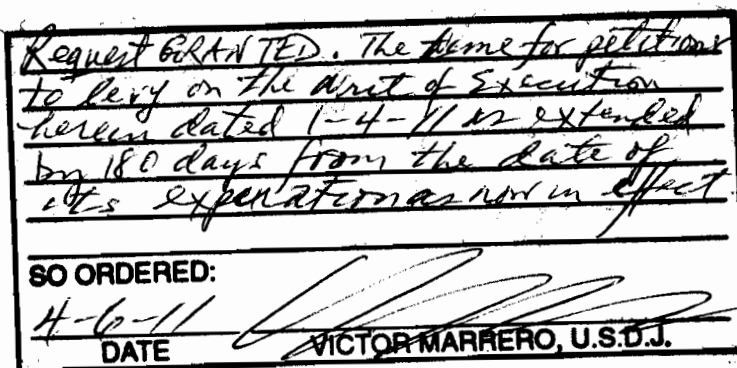 Request GRANTED. The time for petitions
to levy on the Writ of Execution
herein dated 1-4-11 is extended
by 180 days from the date of
its expiration as now in effect.
SO ORDERED:
4-6-11
DATE VICTOR MARRERO, U.S.D.J.